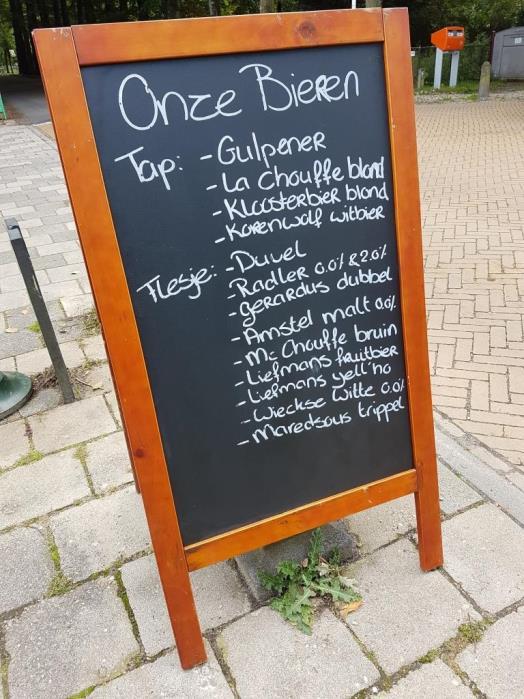 Onze Bieren
Tap: - Gulpener
- La Chouffe blond
- Kloosterbier blond
- Korenwolf witbier
Flesje: - Duvel
- Radler 0.0% & 2.0%
- gerardus dubbel
- Amstel malt 0.0%
- Mc Chouffe bruin
- Liefmans fruitbier
- Liefmans yell'no
- Wieckse witte 0.0%
- Maredsous trippel